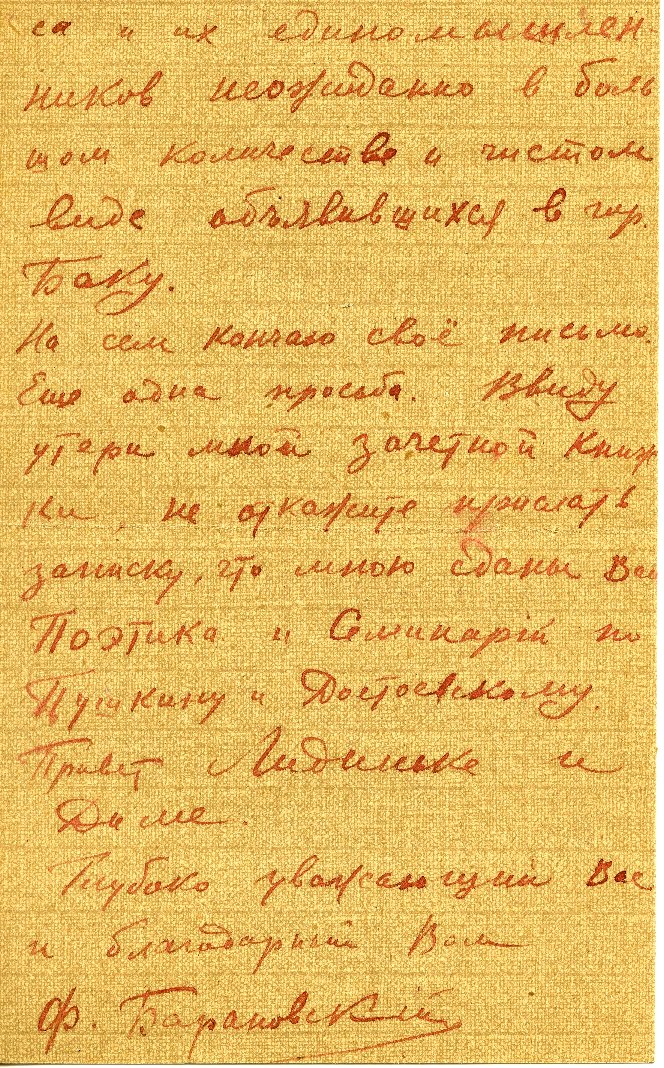 са и их единомышлен-
ников неожиданно в боль
шом количестве и чистом
виде объявившихся в гор.
Баку.
На сем кончаю своё письмо.
Еще одна просьба. Ввиду
утери мной зачетной книж
ки, не откажите прислать
записку, что мною сданы Вам
Поэтика и Семинарій по
Пушкину и Достоевскому.
Привет Лидиньке и
Диме.
Глубоко уважающий Вас
и благодарный Вам
Ф. Барановскій